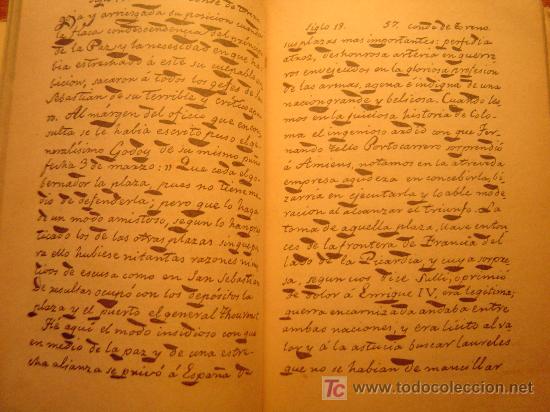 Siglo 19. 57. Conde de Toreno
y arriesgada su posicion cuando
la flaca condescendencia del príncipe
de la Paz, y la necesidad en que ha-
bia estrechado á este su culpable am-
bicion, sacaron á todos los gefes de San
Sebastian de su terrible y crítico apu-
ro. Al margen del oficio que en con-
sulta se le habia escrito puso el ge-
neralísimo Godoy de su mismo puño
fecha 3 de marzo: "Que ceda el go-
bernador la plaza, pues no tiene me-
dio de defenderla; pero que lo haga
de un modo amistoso, segun lo han prac-
ticado los de las otras plazas sin que pa-
ra ello hubiese ni tantas razones ni mo-
tivos de escusa como en San Sebastian
De resultas ocupó con los depósitos la
plaza y el puerto el general Thouvenot
He aquí el modo insidioso con que
en medio de la paz y de una estre-
cha alianza se privó á España de
sus plazas mas importantes: perfidia
atroz, deshonrosa artería en guerre-
ros envejecidos en la gloriosa profesion
de las armas, agena é indigna de una
nacion grande y belicosa. Cuando lee-
mos en la juiciosa historia de Coloma
el ingenioso ardid con que Fer-
nando Tello Portocarrero sorprendió
á Amiens, notamos en la atrevida
empresa agudeza en concebirla, bi-
zarria en ejecutarla y loable mode-
racion al alcanzar el triunfo. La
toma de aquella plaza, llave enton-
ces de la frontera de Francia del
lado de la Picardía, y cuya sorpre-
sa, segun nos dice Sulli, oprimió
de dolor á Enrique IV, era legítima;
guerra encarnizada andaba entre
ambas naciones, y era lícito al va-
lor y á la astucia buscar laureles
que no se habian de mancillar
todocoleccion
www.todocoleccion.net